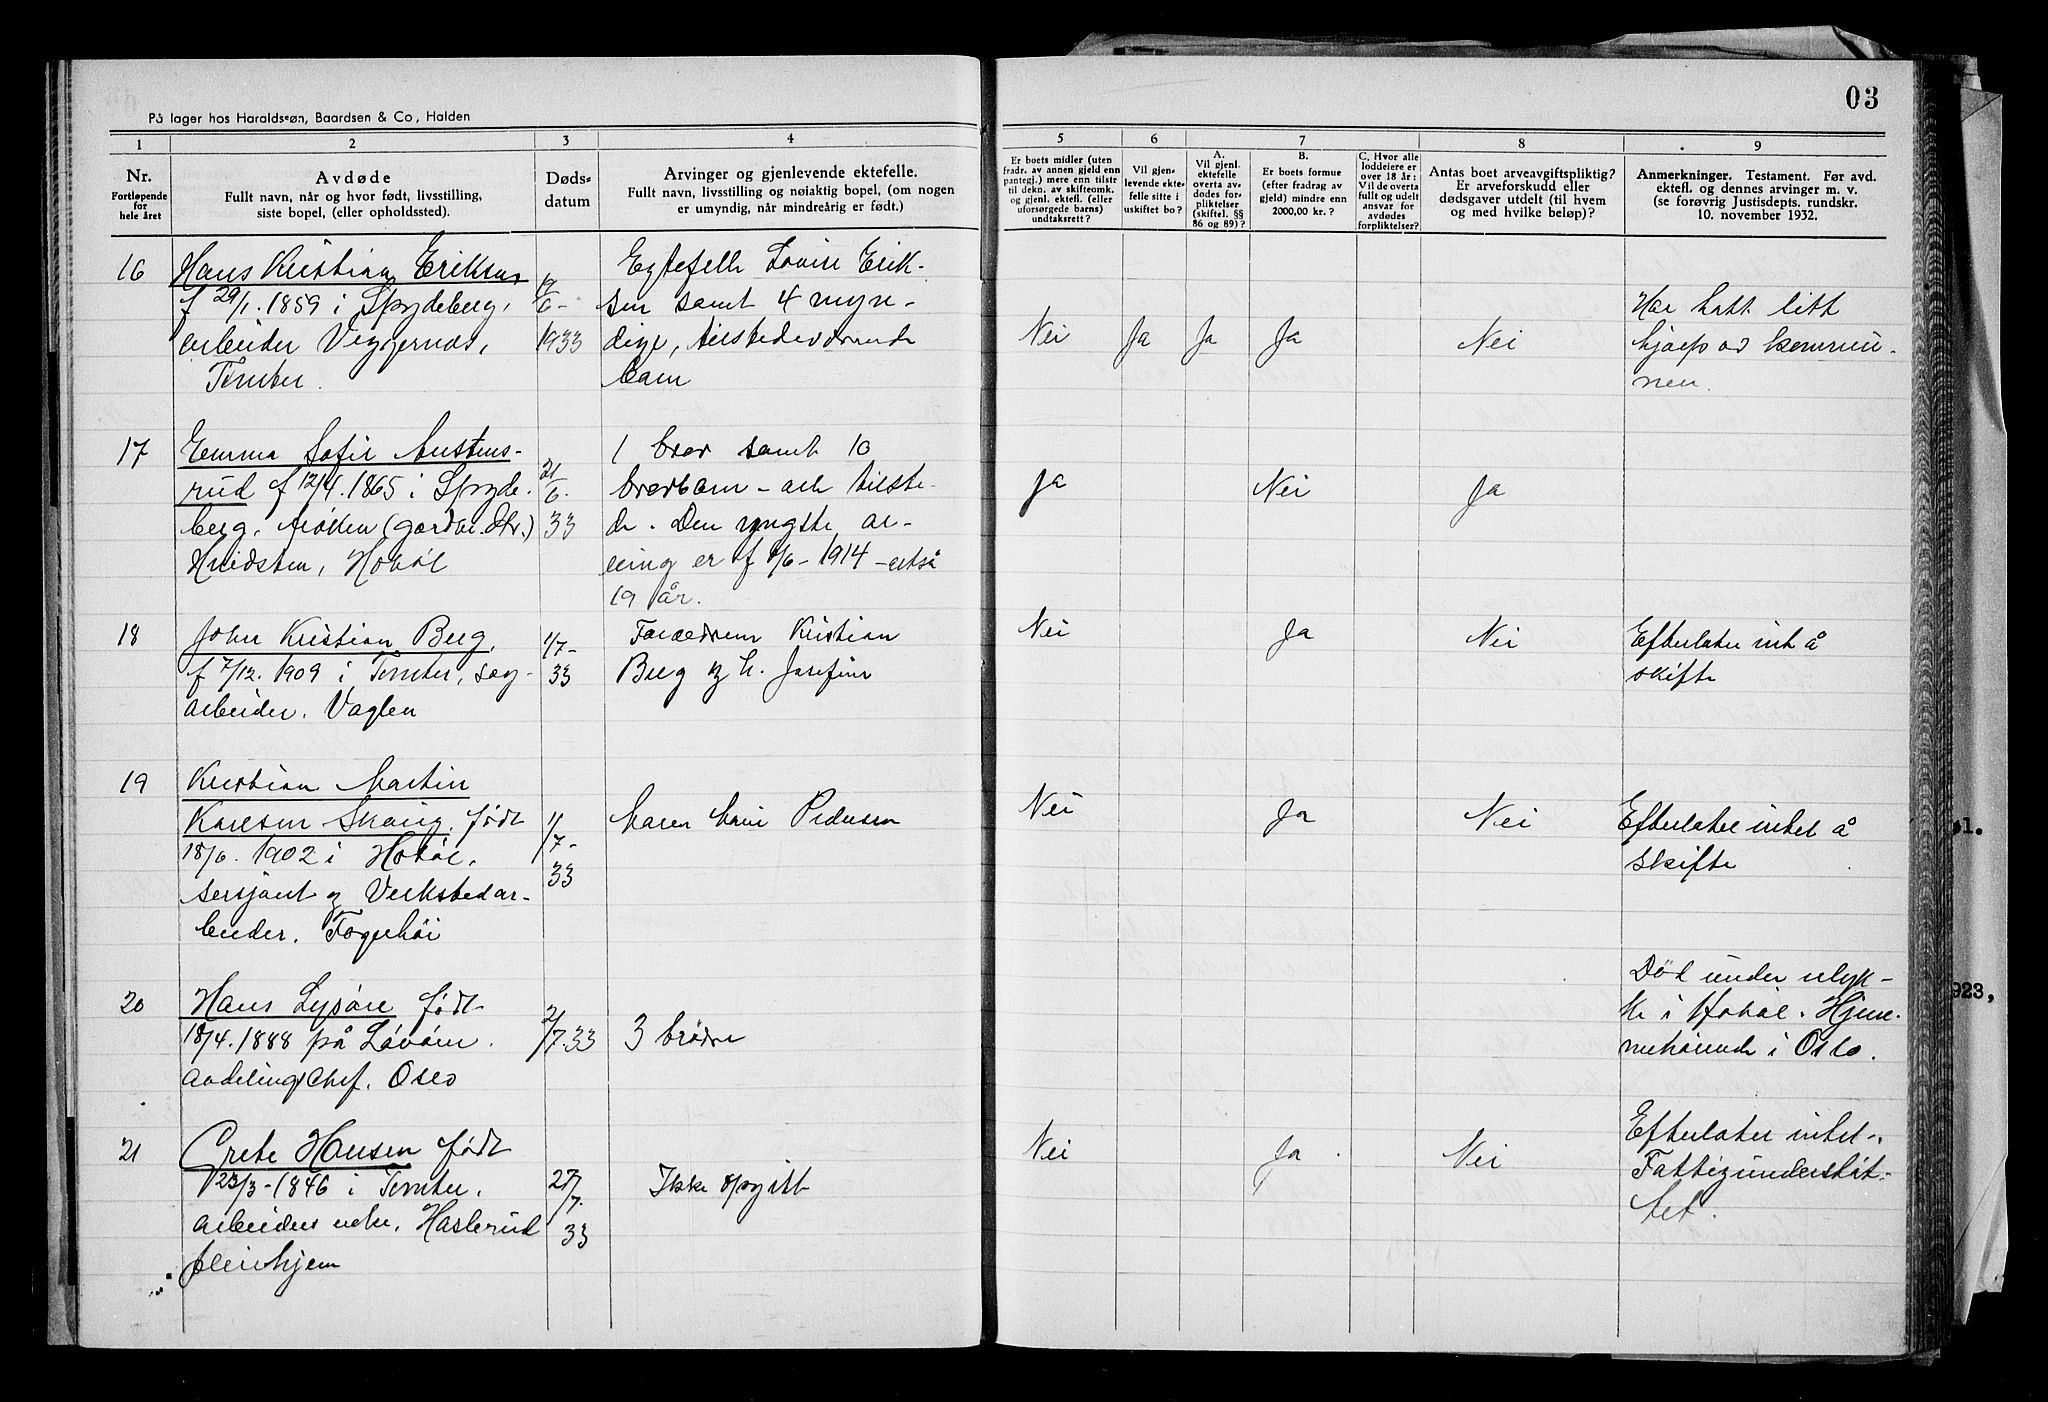 03
På lager hos Haraldssøn, Baardsen & Co, Halden
1 2 3 4 5 6 7 8 9
Nr.
Fortløpende
for
hele året
Avdøde
Fullt navn, når og hvor født, livsstilling,
siste bopel, (eller opholdssted).
Døds-
datum
Arvinger og gjenlevende ektefelle.
Fullt navn, livsstilling og nøiaktig bopel, (om nogen
er umyndig, når mindreårig er født.)
Er boets midler (uten
fradr. av annen gjeld enn
pantegj.) mere enn tilstr
til dekn. av skifteomk.
og gjenl. ektef. (eller
uforsørgede barns)
undtaksrett?
Vil gjen-
levende ekte-
felle sitte i
uskiftet bo?
A.
Vil gjenl.
ektefelle
overta av-
dødes for-
pliktelser
(skiftel. §§
86 og 89)?
B.
Er boets formue
(efter fradrag av
gjeld) mindre enn
2000,00 kr.?
C. Hvor alle
loddeiere er
over 18 år:
Vil de overta
fullt og udelt
ansvar for
avdødes
forpliktelser?
Antas boet arveavgiftspliktig?
Er arveforskudd eller
dødsgaver utdelt (til hvem
og med hvilke beløp)?
Anmerkninger. Testament. Før avd.
ektefl. og dennes arvinger m. v.
(se forøvrig Justisdepts. rundskr.
10. november 1932.
16
Hans Kristian Eriksen,
f 29/1. 1859 i Spydeberg,
arbeider
Tomter.
6-
1933
Egtefelle Lovise Erik-
sen samt 4 myn-
dige, tilstedeværende
barn
Nei Ja Ja Ja Nei
Har hatt litt
hjælp av kommu-
nen.
17
Emma Sofie Austens-
rud f 12/4. 1865 i Spyde-
berg,
Hobøl
21/6.
33
1 bror samt 10
brorbarn - alle tilste-
de. Den yngste ar-
ving er f 1914 - altså
19 år.
Ja Nei Ja
18
John Kristian Berg,
f 7/12. 1909 i Tomter, sag-
arbeider. Vaglen
1/7-
33
Foreldrene Kristian
Berg og h. Josefine
Nei Ja Nei
Efterlater intet å
skifte
19
Kristian Martin
Karlsen Skaug, født
18/6. 1902 i Hobøl,
sersjant og Verkstedar-
beider.
1/7-
33
Maren Marie Pedersen
Nei Ja Nei
Efterlater intet å
skifte
20
Hans Lysøre født
18/4. 1888 på
avdelingschef. Oslo
2/7.33
3 brødre
Død under ulyk-
ke i Hobøl. Hjem-
mehørende i Oslo.
21
Grete Hansen født
23/3-1846 i Tomter,
arbeiders enke, Haslerud
pleiehjem
27/7.
33
Ikke opgitt
Nei Ja Nei
Efterlater intet.
Fattigunderstøt-
tet.
øl.
923,